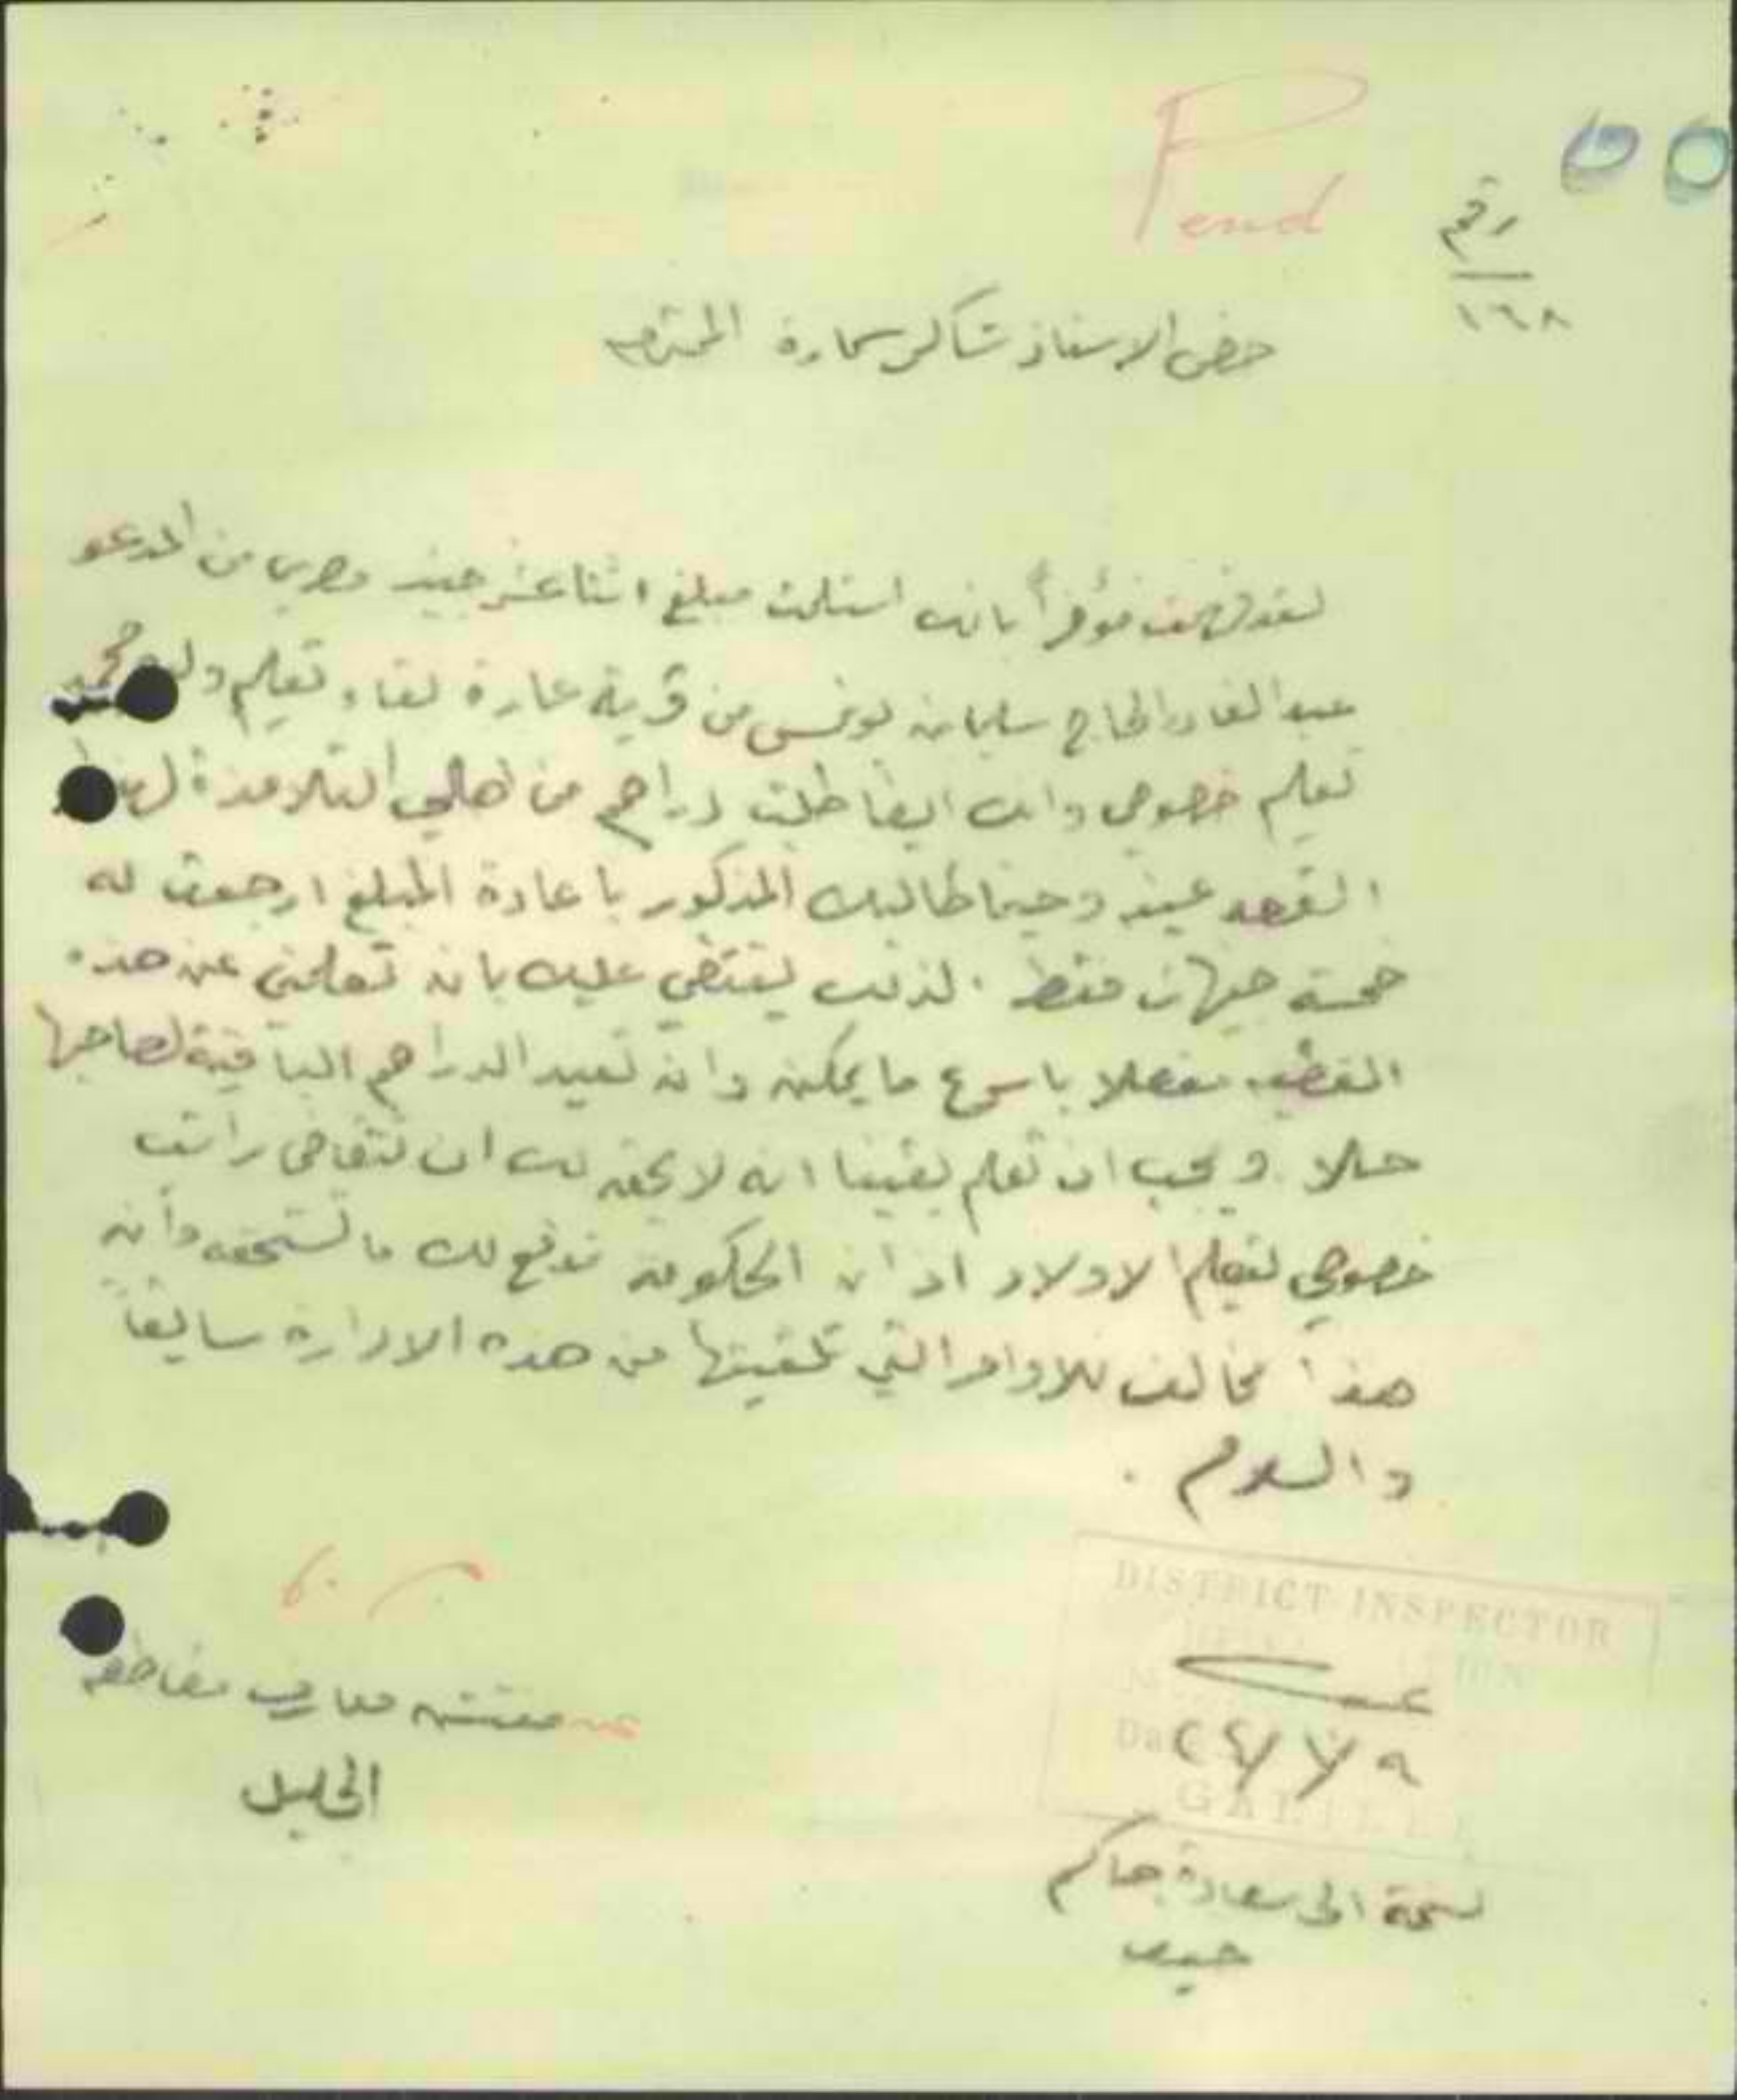 Pend
رقم
١٦٨
حضرة الاستاذ شاكر سمارة المحترم
لقد فهمت مؤخراً بانك استلمت مبلغ اثنا عشر جنيه مصري من المدعو
عبد القادر الحاج سليمان يونس من قرية عارة لقاء تعليم ولده محمد
تعليم خصوصي وانك ايضا طلبت دراهم من اهالي التلامذة لهذا
القصد عينه وحينما طالبك المذكور باعادة المبلغ ارجعت له
خمسة جنيهات فقط . لذلك يقتضي عليك بان تعلمني عن هذه
القضيه مفصلا باسرع ما يمكن وان تعيد الدراهم الباقية لصاحبها
حالا . ويجب ان تعلم يقينا انه لا يحق لك ان تتقاضى راتب
خصوصي لتعليم الاولاد اذ ان الحكومة تدفع لك ما تستحقه وأن
هذا مخالف للاوامر التي تلقيتها من هذه الادارة سابقاً
والسلام .
DISTRICT INSPECTOR
عكا
GALILEE
عن مفتش معارف مقاطعة
الجليل
نسخة الى سعادة حاكم